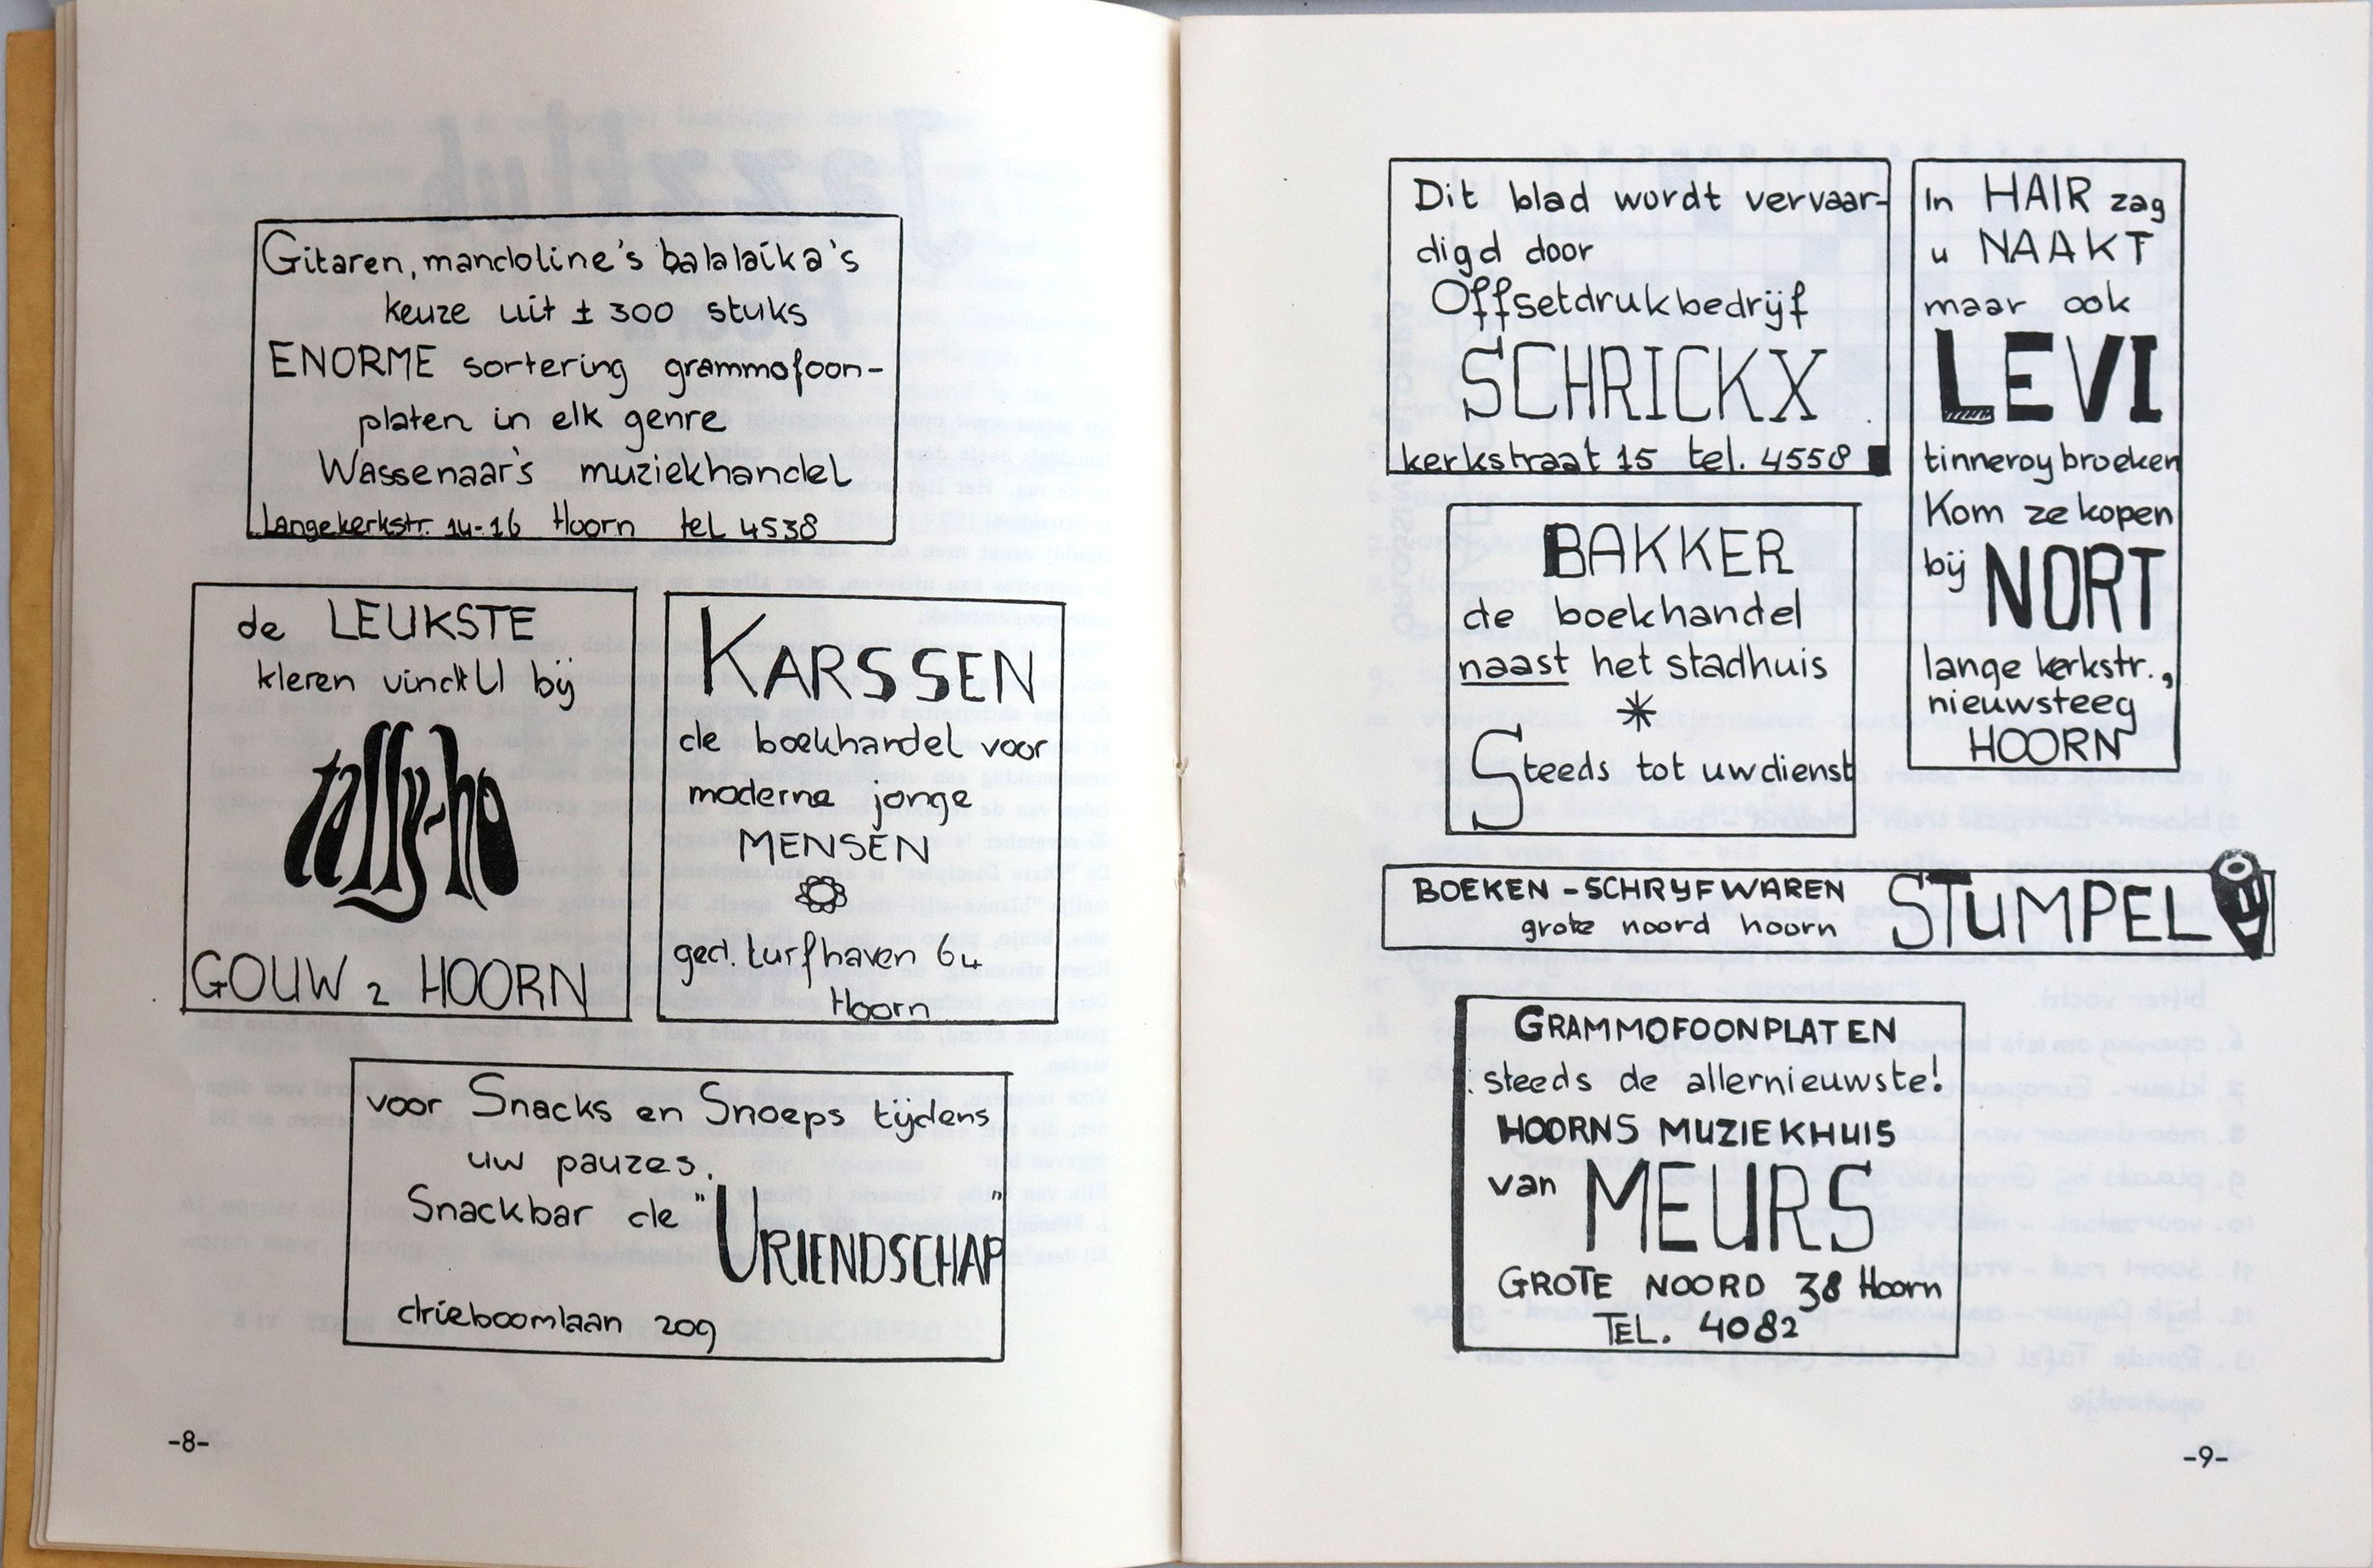 Gitaren, mandoline's balalaika's
keuze uit ± 300 stuks
ENORME sortering grammofoon-
platen in elk genre
Wassenaar's muziekhandel
Langekerkstr. 14-16 Hoorn tel 4538
de LEUKSTE
kleren vindt U bij
tally-ho
GOUW 2 HOORN
KARSSEN
de boekhandel voor
moderne jonge
MENSEN
ged. turfhaven 64
Hoorn
voor Snacks en Snoeps tijdens
uw pauzes.
Snackbar de "VRIENDSCHAP"
drieboomlaan 209
-8-
Dit blad wordt vervaar-
digd door
Offsetdrukbedrijf
SCHRICKX
kerkstraat 15 tel. 4558
In HAIR zag
u NAAKT
maar ook
LEVI
tinneroy broeken
Kom ze kopen
bij NORT
lange kerkstr.,
nieuwsteeg
HOORN
BAKKER
de boekhandel
naast het stadhuis
Steeds tot uw dienst
BOEKEN - SCHRYFWAREN STUMPEL
grote noord hoorn
GRAMMOFOONPLATEN
steeds de allernieuwste!
HOORNS MUZIEKHUIS
van MEURS
GROTE NOORD 38 Hoorn
TEL. 4082
-9-